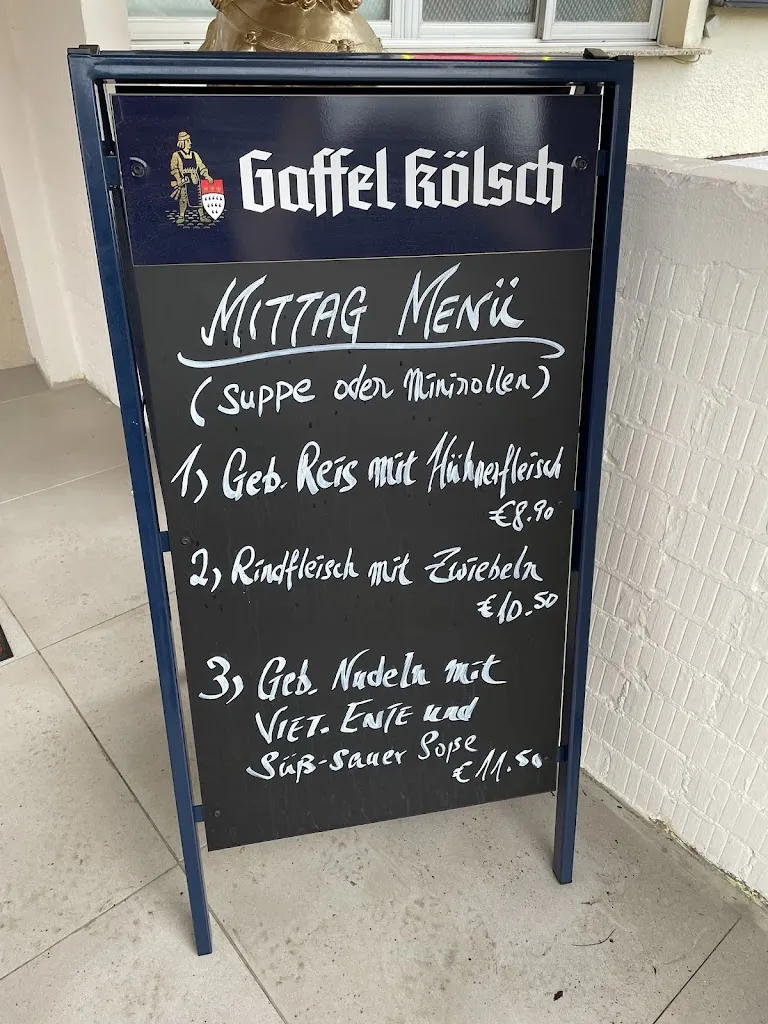 Gaffel Kölsch
MITTAG MENÜ
(Suppe oder Minirollen)
1) Geb. Reis mit Hühnerfleisch
€8.90
2) Rindfleisch mit Zwiebeln
€10.50
3) Geb. Nudeln mit
VIET. ENTE und
Süß-Sauer Soße
€11.50